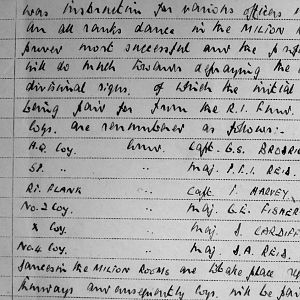 was instruction for various officers
an all ranks dance in the MILTON
proved most successful and the
will do much towards defraying the
divisional signs, of which the initial
being paid for from the R.I. Fund.
Coys. are remembered as follows:-
H.Q. Coy. Capt. G.S.
SP. " " Maj. P.F.I. REIS.
RT. FLANK " Capt. F. HARVEY
No. 2 Coy. " Maj. G.E. FISHER
X Coy. " Maj. S. CARDIFF
No. 4 Coy. " Maj. S.A. REIS.
Dances in the MILTON ROOMS are to take place
Thursdays and subsequently Coys. will be